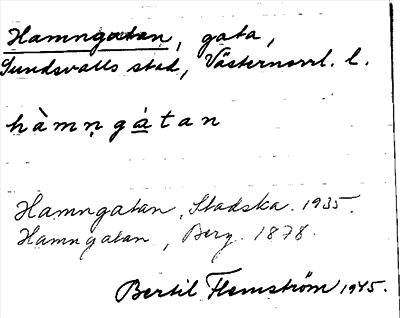 Hamngatan, gata,
Sundsvalls stad, Västernorrl. l.
hàmṇgátan
Hamngatan, Stadska. 1935.
Hamngatan, Berg. 1878.
Bertil Flemström 1945.